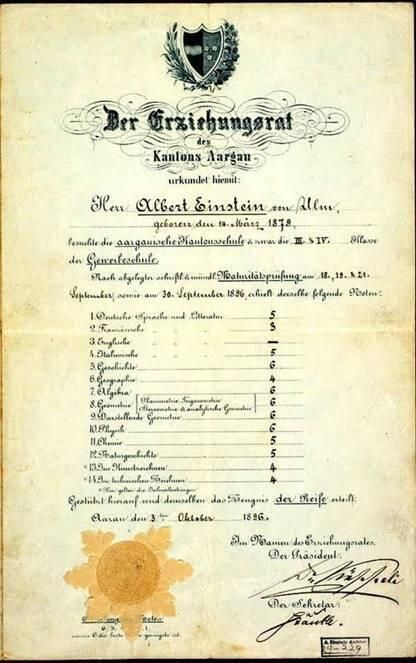 Der Erziehungsrat
des
Kantons Aargau
urkundet hiemit:
Herr Albert Einstein von Ulm,
geboren den 14. März 1879,
besuchte die aargauische Kantonsschule & zwar die III. & IV. Klasse
der Gewerbeschule.
Nach abgelegter schriftl. & mündl. Maturitätsprüfung am 18., 19. & 21.
September, sowie am 30. September 1896, erhielt derselbe folgende Noten:
1. Deutsche Sprache und Litteratur 5
2. Französische " " " 3
3. Englische " " " —
4. Italienische " " " 5
5. Geschichte 6
6. Geographie 4
7. Algebra 6
8. Geometrie (Planimetrie, Trigonometrie, Stereometrie & analytische Geometrie) 6
9. Darstellende Geometrie 6
10. Physik 6
11. Chemie 5
12. Naturgeschichte 5
*13. Im Kunstzeichnen 4
*14. Im technischen Zeichnen 4
* Hier gelten die Jahresleistungen.
Gestützt hierauf wird demselben das Zeugnis der Reife erteilt.
Aarau den 3ten Oktober 1896.
Im Namen des Erziehungsrates,
Der Präsident:
Der Sekretär:
A. Einstein Archive
29-229